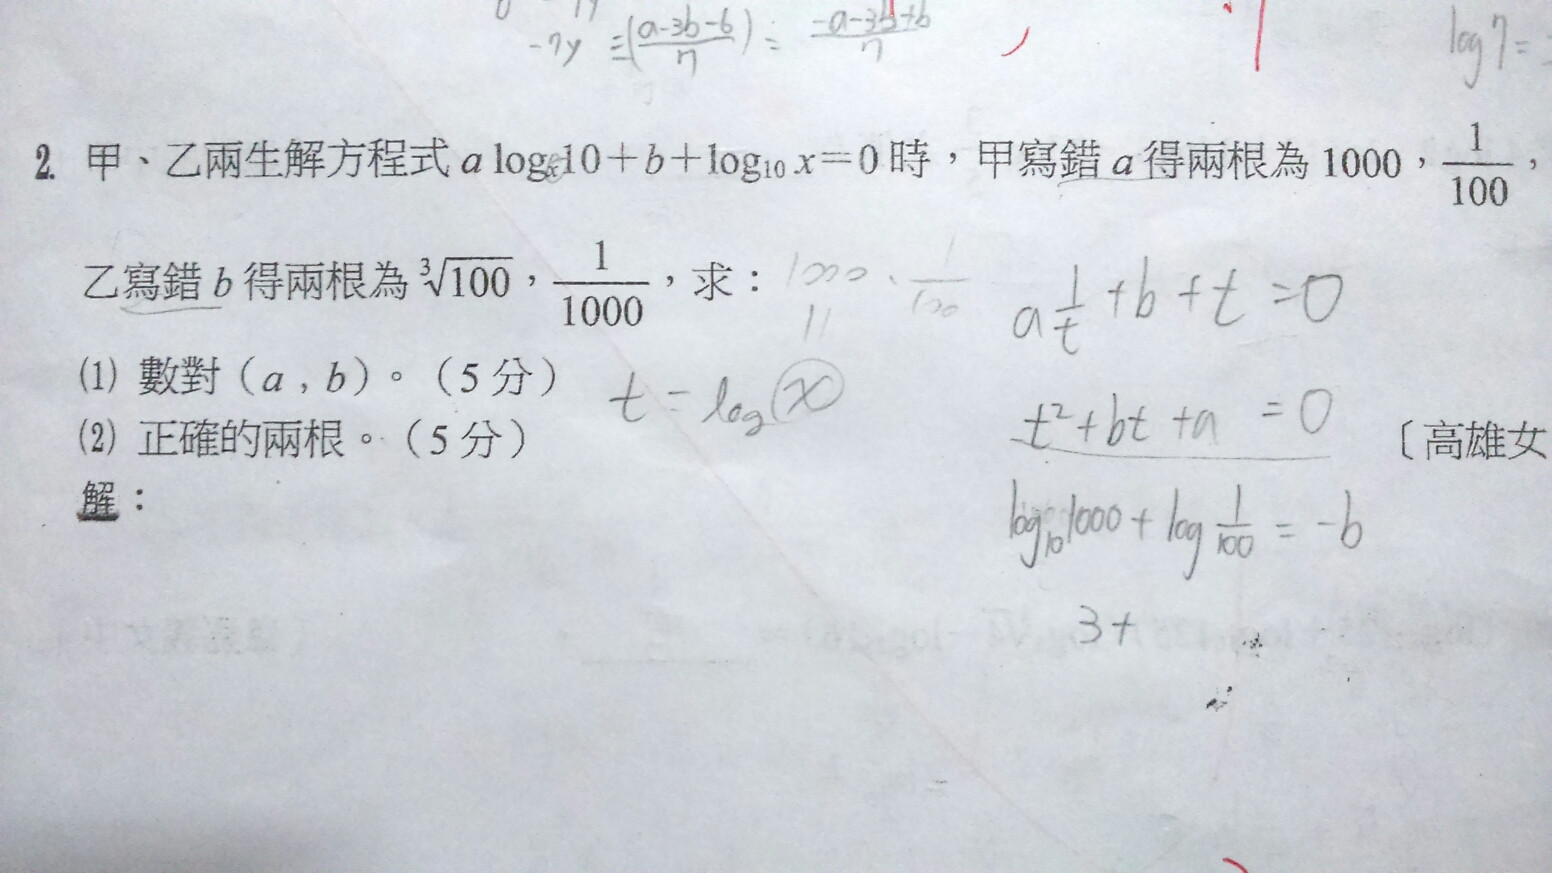 -7y = (a-3b-6)/7 = -a-3b+6/7
log7=
2. 甲、乙兩生解方程式 a logₓ10+b+log₁₀ x=0 時，甲寫錯 a 得兩根為 1000，1/100，
乙寫錯 b 得兩根為 ³√100，1/1000，求：
1000、1/100
a 1/t +b+t=0
(1) 數對（a , b）。（5 分）
t = log x
(2) 正確的兩根。（5 分）
t²+bt+a =0
〔高雄女
解：
log₁₀1000+log 1/100 = -b
3+